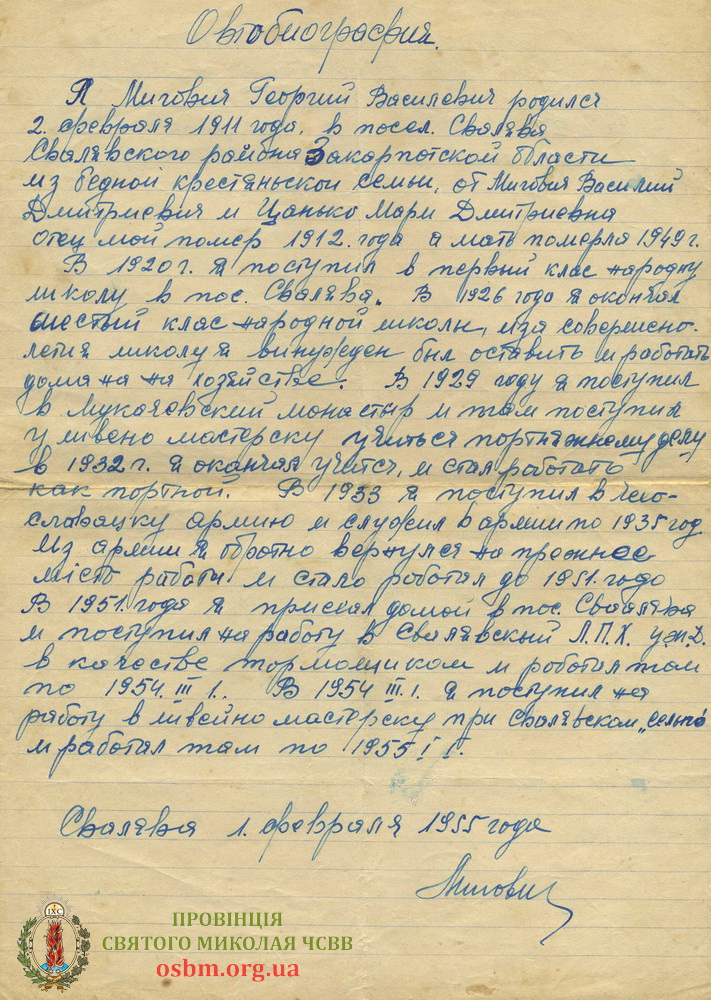 Овтобиография.
Я Мигович Георгий Василевич родился
2. февраля 1911 года, в посел. Свалява
Свалявского района Закарпотской области
из бедной крестяньской семьи, от Мигович Василий
Дмитриевич и Цанько Мари Дмитриевна
отец мой помер 1912. года а мать померла 1949 г.
В 1920 г. я поступил в первый клас народну
школу в пос. Свалява. В 1926 года я окончал
шестый клас народной школи, иза совершено-
летия школу я винужден был оставить и работать
дома на на хозяйстве. В 1929 году я поступил
в Мукачевский монастыр и там поступил
у швено мастерску учиться портняжному делу
в 1932 г. я окончал учится, и стал работать
как портной. В 1933 я поступил в чехо-
словацку армию и служил в армии по 1935 год
Из армии я обратно вернулся на прежнее
мість работи и стало роботал до 1951. годо
В 1951. года я приехал домой в пос. Сваалява
и поступил на работу в Свалявский Л.П.Х. у.ж.д.
в качестве тормощиком и роботал там
по 1954. III 1.. В 1954 III. 1. я поступил на
работу в швейно мастерску при Свалявском „сельпо
и работал там по 1955 I 1.
Свалява 1. февраля 1955 года
Мигович
IXC
ПРОВІНЦІЯ
СВЯТОГО МИКОЛАЯ ЧСВВ
osbm.org.ua